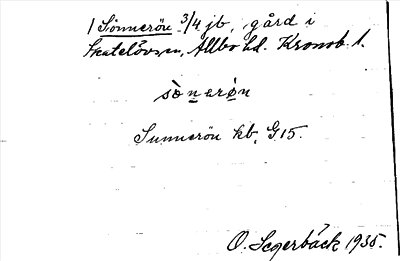 1 Sönnerön 3/4 jb, gård i
Skatelövs sn, Allbo hd. Kronob. l.
sònerø̀n
Sunnerön kb, G15.
O. Segerbäck 1935.